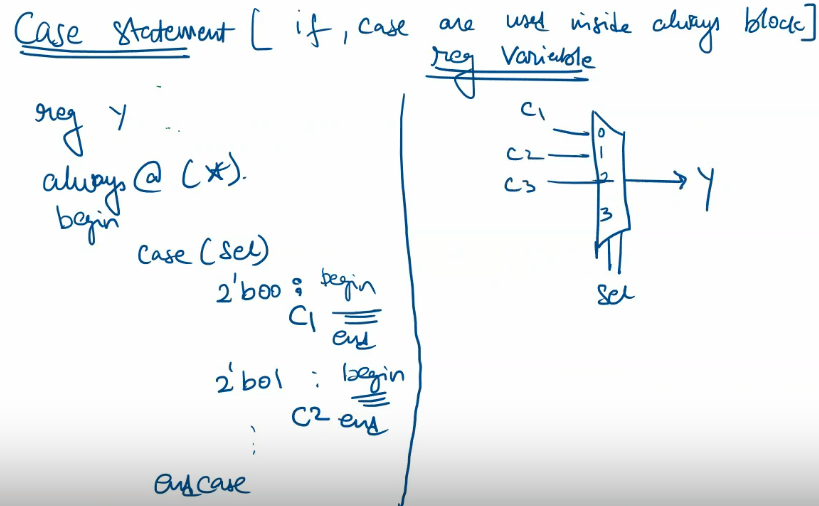 Case Statement [ if, case are used inside always block]
reg Variable
reg Y
always @ (*).
begin
case (sel)
2'b00 : begin
C1
end
2'b01 : begin
C2 end
endcase
C1
C2
C3
0
1
2
3
Y
Sel